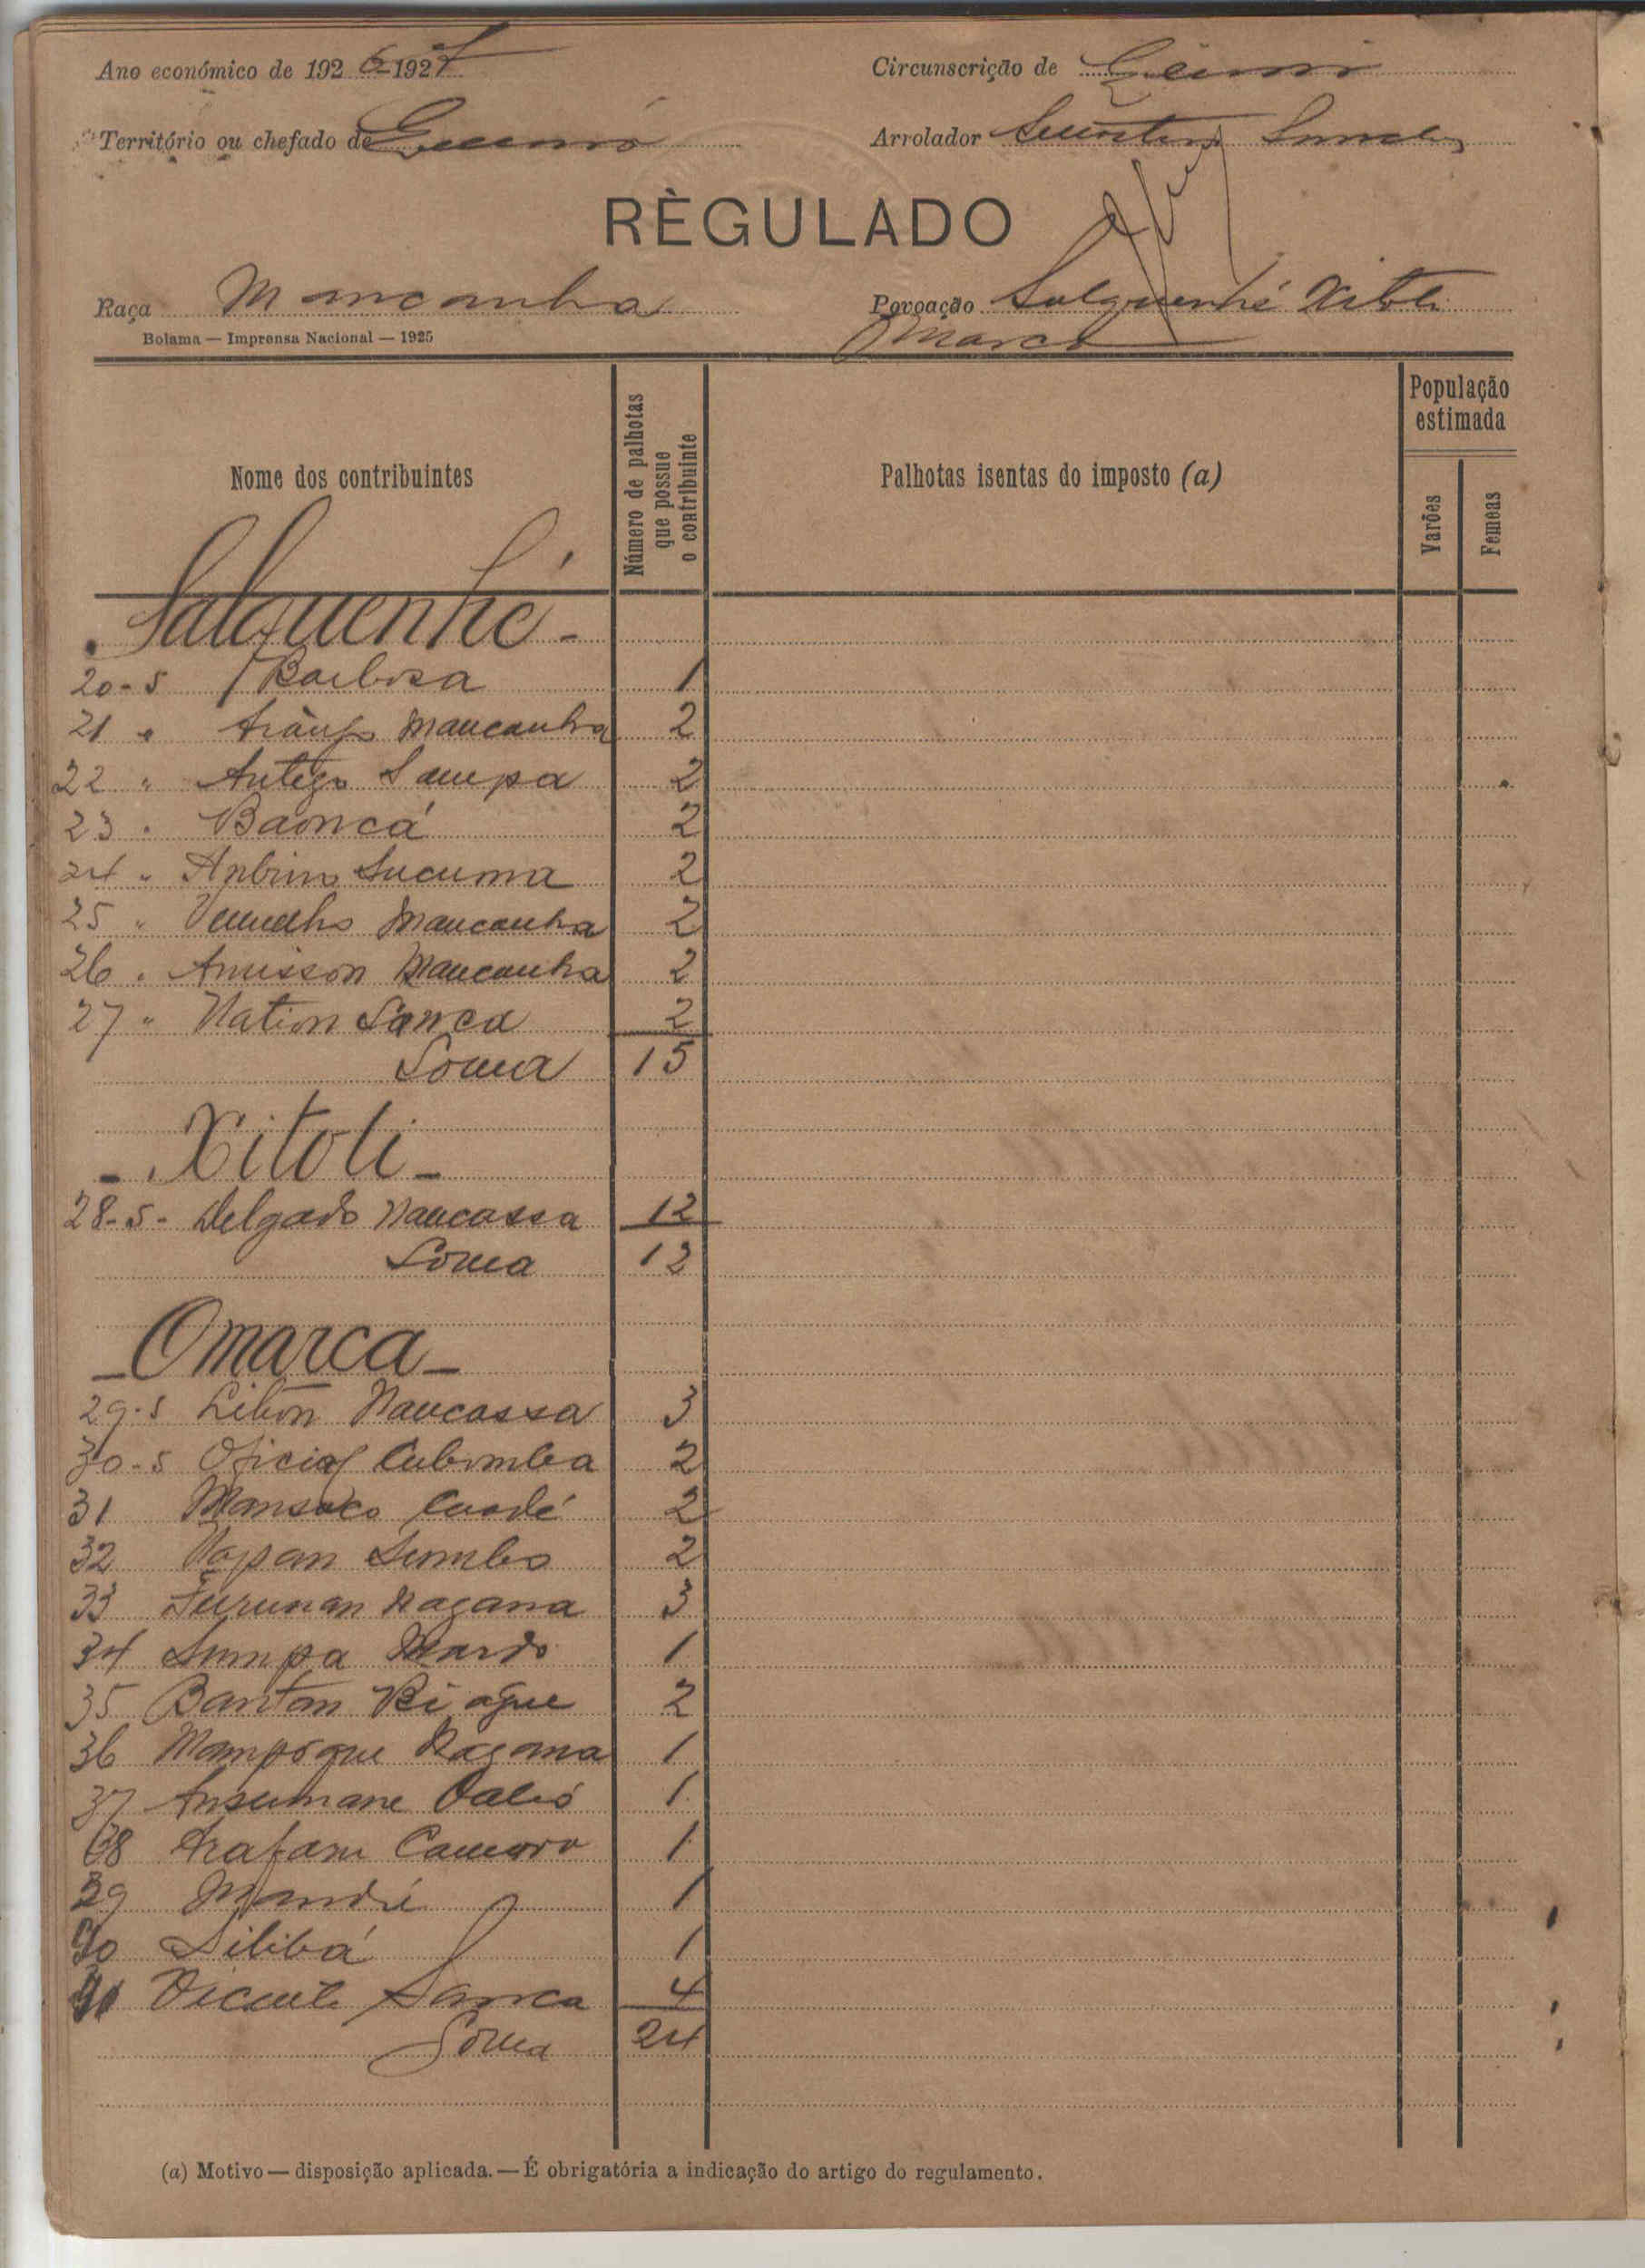 Ano económico de 1926-1927
Circunscrição de
Território ou chefado de
Arrolador
RÈGULADO
Raça Mancanha
Povoação Salquenhé Xitoli
Omarca
Bolama — Imprensa Nacional — 1925
Nome dos contribuintes
Número de palhotas que possue o contribuinte
Palhotas isentas do imposto (a)
População estimada
Varões
Femeas
Salquenhé -
20-5 Barbosa 1
21 " Araujo Mancanha 2
22 " Antigo Sampa 2
23 " Baoncá 2
24 " Sucuma 2
25 " Vermelho Mancanha 2
26 " Mancanha 2
27 " Nation Sanca 2
Soma 15
- Xitoli -
28-5- Delgado Nancassa 12
Soma 12
- Omarca -
29-5 Nancassa 3
30-5 Oficial Cubomba 2
31 Mansoco 2
32 2
33 Nagana 3
34 Sumpa 1
35 Bantam Biague 2
36 Nagana 1
37 Ansumane 1
38 Arafam Camara 1
39 1
40 Silibá 1
41 Vicente Sanca 4
Soma 24
(a) Motivo — disposição aplicada. — É obrigatória a indicação do artigo do regulamento.